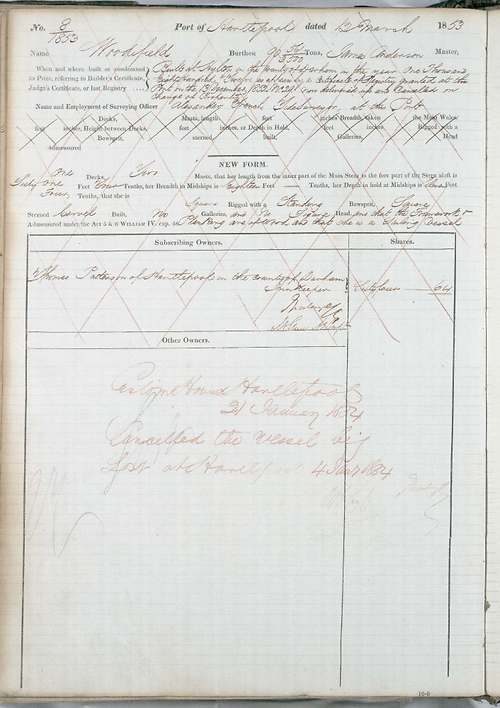 No. 8/1853 Port of Hartlepool dated 12 March 1853
Name Woodifield Burthen Tons, James Anderson Master,
When and where built or condemned
as Prize, referring to Builder's Certificate,
Judge's Certificate, or last Registry
Built at Hylton in the County of Durham in the year One Thousand
Eight hundred
Port on the 13 December 1852 No. 29 now delivered up and Cancelled on
Change of Property
Name and Employment of Surveying Officer Alexander French Tide Surveyor, at this Port
Decks, Masts, length feet inches, Breadth taken the Main Wales
feet inches, Height between Decks, feet inches, or Depth in Hold, feet inches, Rigged with a
Bowsprit, sterned built, Galleries, Head,
Admeasured
NEW FORM.
One Decks Two Masts, that her length from the inner part of the Main Stem to the fore part of the Stern aloft is
Sixty One Feet Four Tenths, her Breadth in Midships is Eighteen Feet — Tenths, her Depth in hold at Midships is Feet
Four Tenths, that she is Square Rigged with a Standing Bowsprit, Square
Sterned Carvel Built, No Galleries, and No Figure Head, and that the Framework &
Admeasured under the Act 5 & 6 WILLIAM IV. cap. 56. Planking are of Wood and that she is a Sailing Vessel
Subscribing Owners. Shares.
Thomas Patterson of Hartlepool in the County of Durham
Innkeeper Sixty four 64
Other Owners.
Hartlepool
21 January 1854
Cancelled the vessel being
Lost at Hartlepool 4 Jany 1854